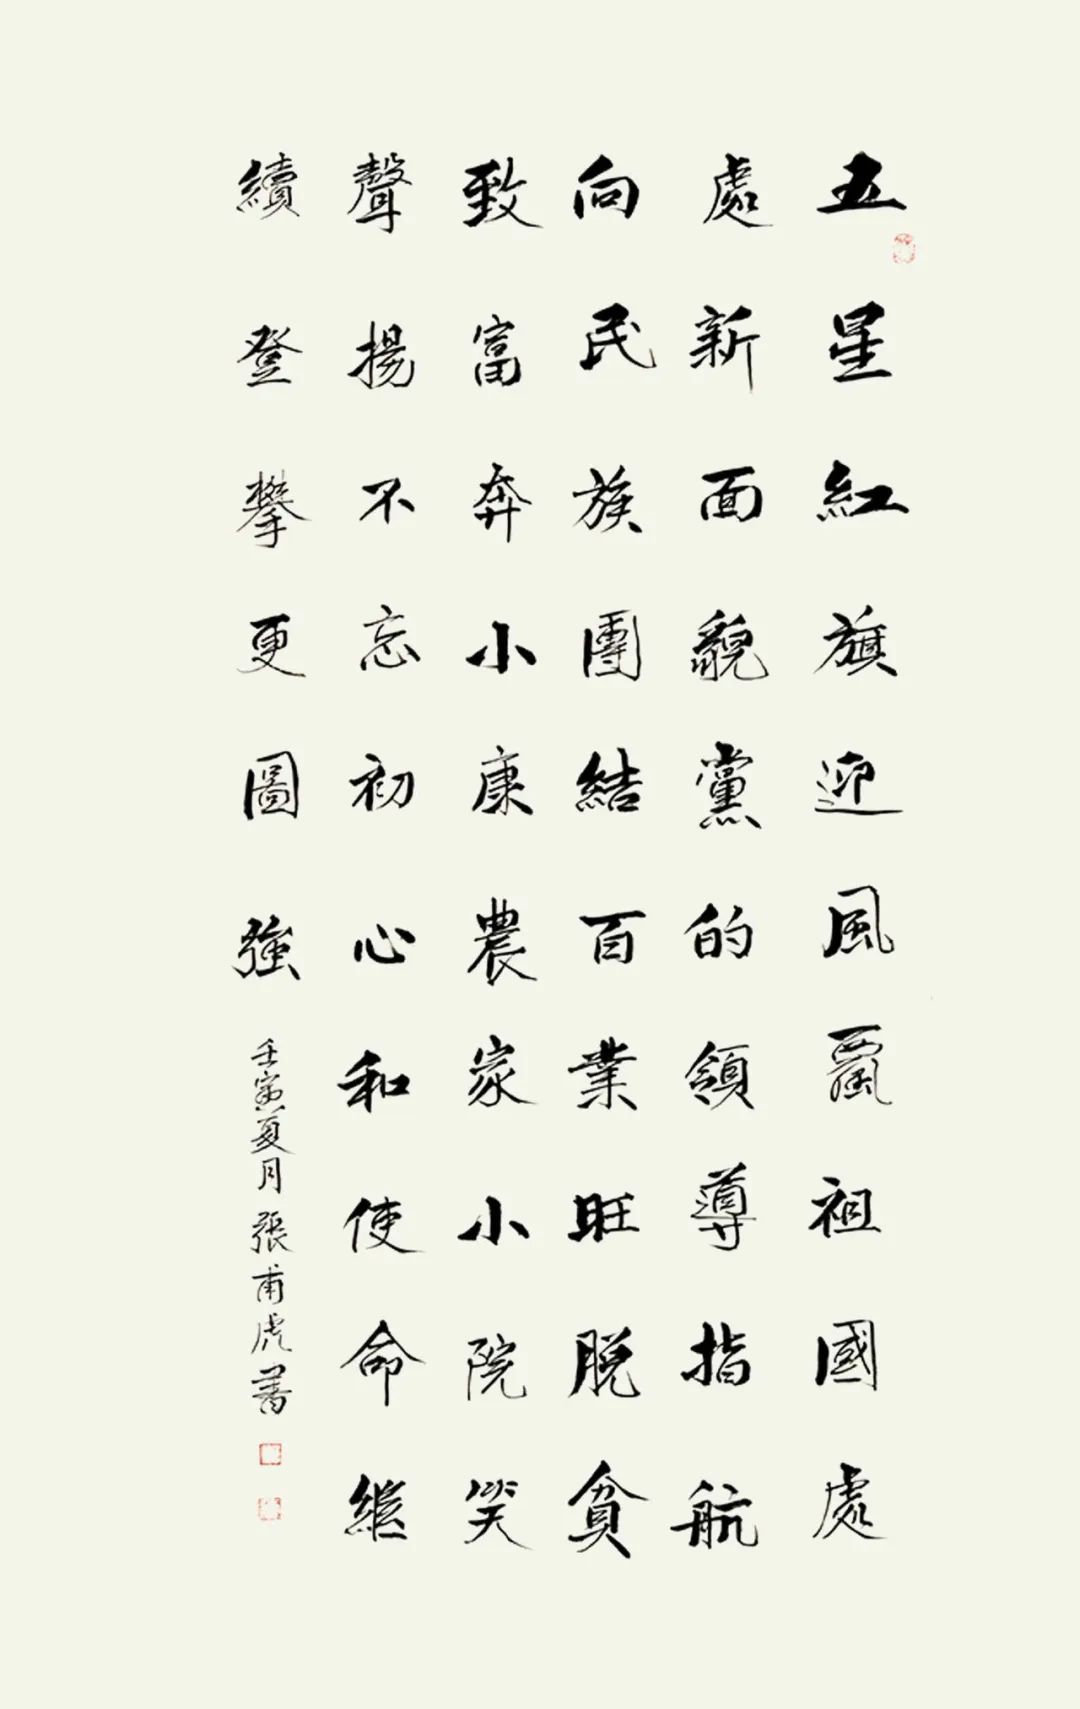 五星紅旗迎風飄祖國處
處新面貌黨的領導指航
向民族團結百業旺脱貧
致富奔小康農家小院笑
聲揚不忘初心和使命繼
續登攀更圖強
壬寅夏月張甫虎書